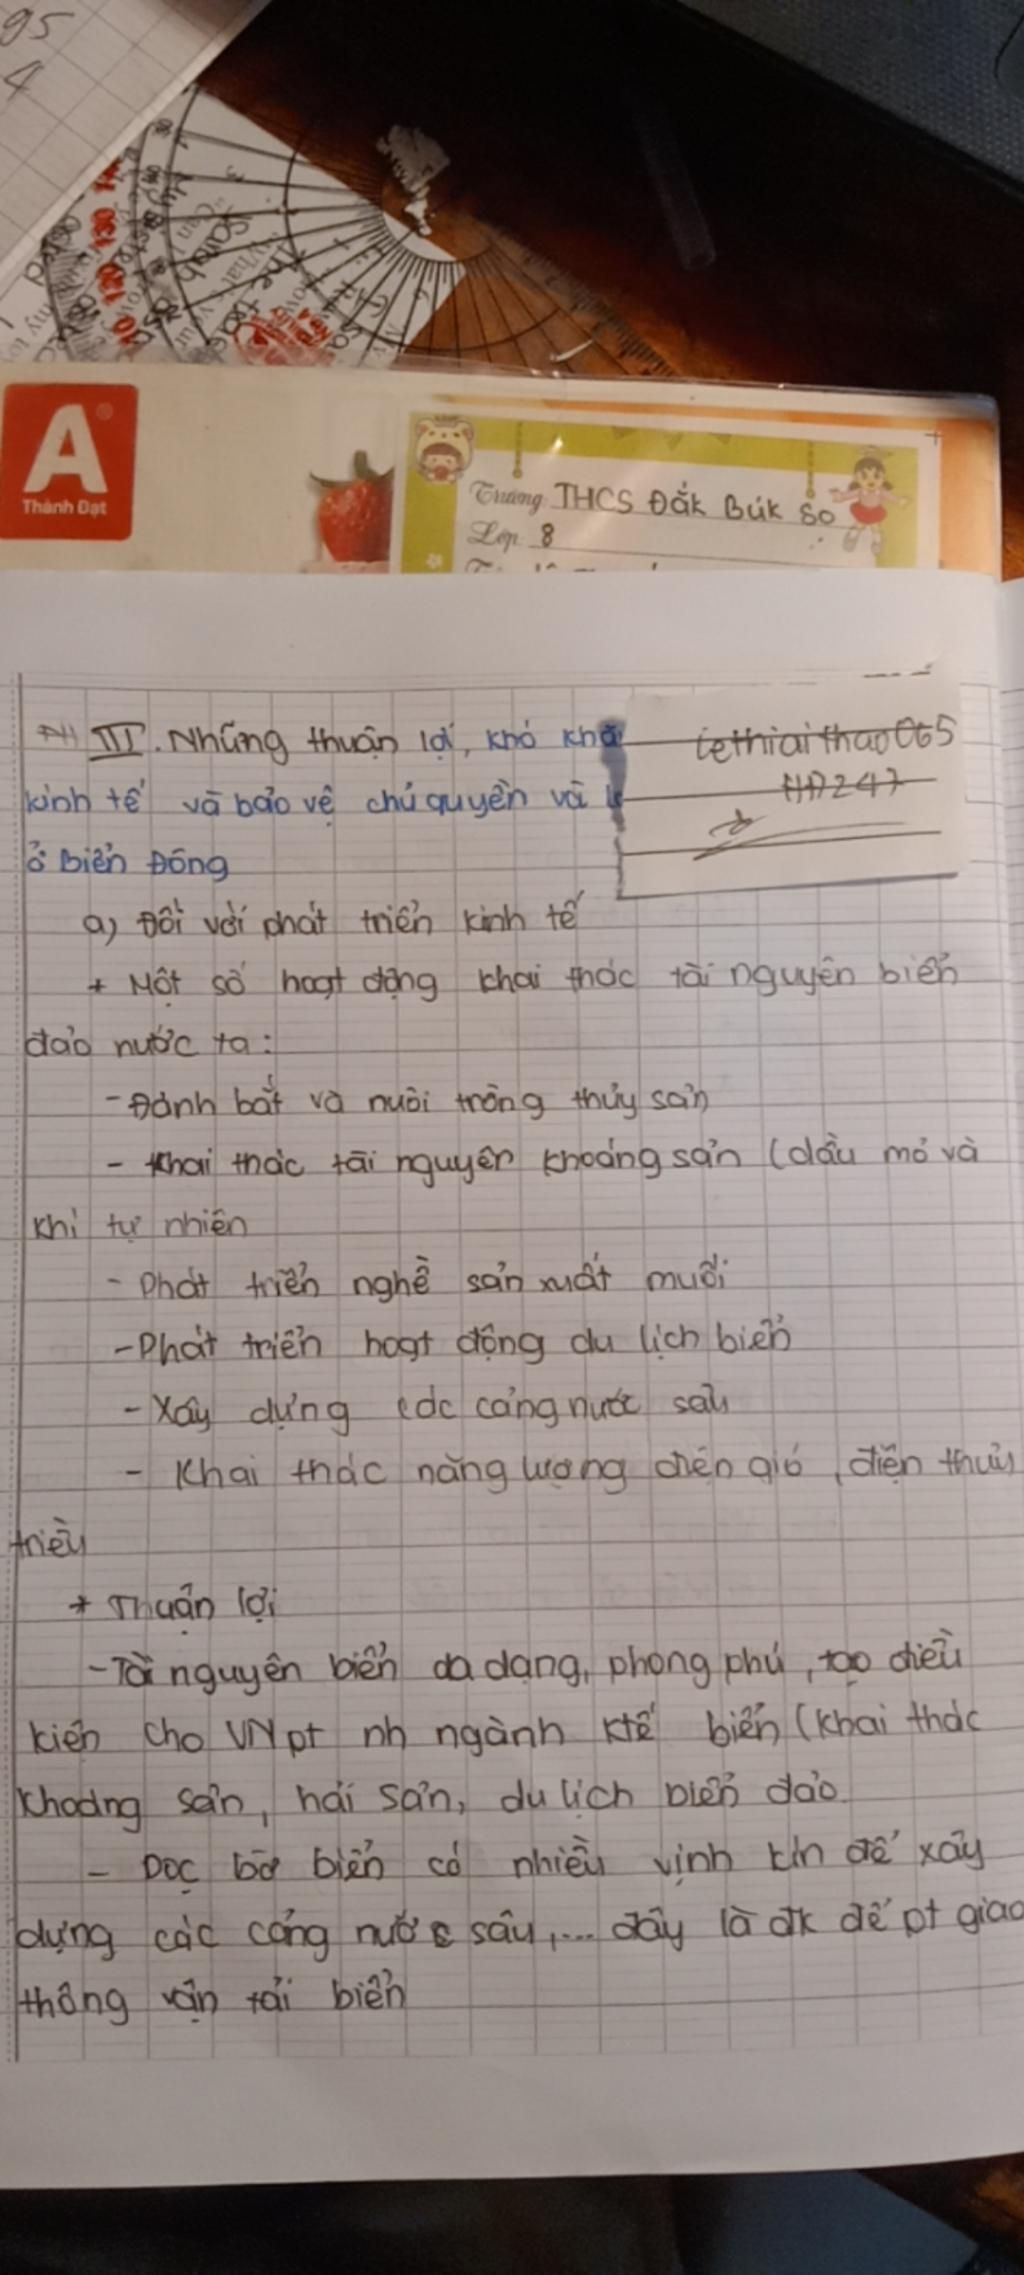 95
4
120 130
A
Thành Đạt
Trường THCS Đắk Búk So
Lớp 8
III. Những thuận lợi, khó khă
lethiaithao065
HD247
kinh tế và bảo vệ chủ quyền và
ở Biển Đông
a) Đối với phát triển kinh tế
+ Một số hoạt động khai thác tài nguyên biển
đảo nước ta:
- Đánh bắt và nuôi trồng thủy sản
- Khai thác tài nguyên khoáng sản (dầu mỏ và
khí tự nhiên
- Phát triển nghề sản xuất muối
- Phát triển hoạt động du lịch biển
- Xây dựng các cảng nước sâu
- Khai thác năng lượng điện gió, điện thủy
triều
+ Thuận lợi
- Tài nguyên biển đa dạng, phong phú, tạo điều
kiện cho VN pt nh ngành ktế biển (khai thác
khoáng sản, hải sản, du lịch biển đảo.
- Dọc bờ biển có nhiều vịnh kín để xây
dựng các cảng nước sâu,... đây là đk để pt giao
thông vận tải biển